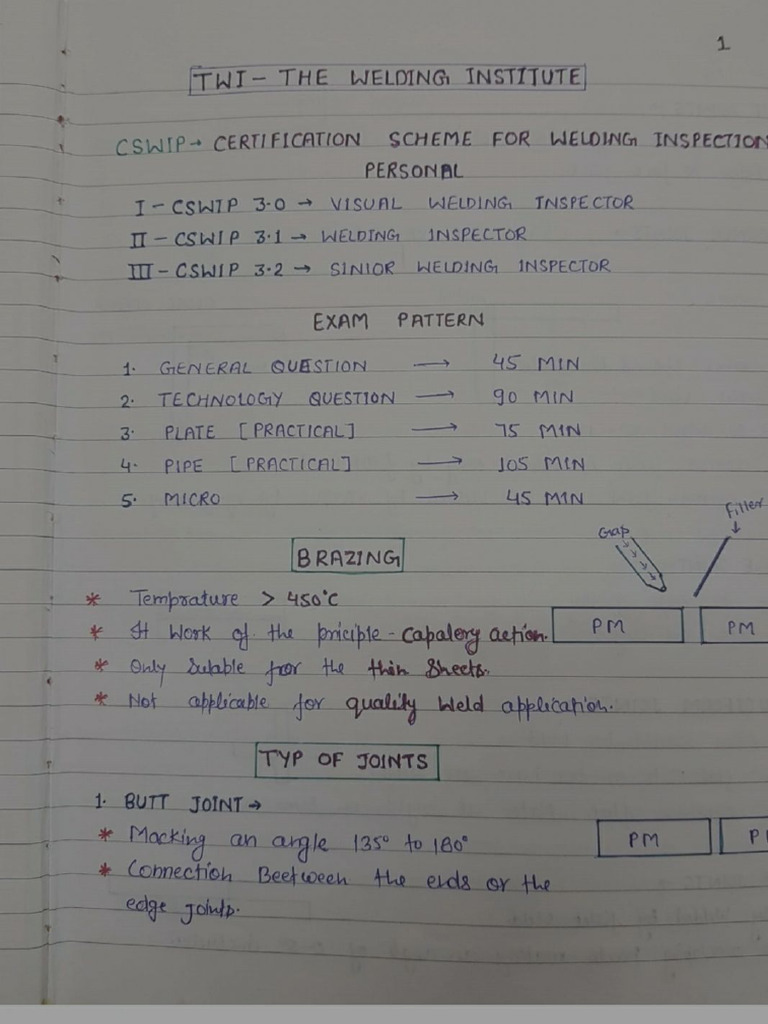 1
TWI - THE WELDING INSTITUTE
CSWIP → CERTIFICATION SCHEME FOR WELDING INSPECTION
PERSONAL
I - CSWIP 3.0 → VISUAL WELDING INSPECTOR
II - CSWIP 3.1 → WELDING INSPECTOR
III - CSWIP 3.2 → SINIOR WELDING INSPECTOR
EXAM PATTERN
1. GENERAL QUESTION → 45 MIN
2. TECHNOLOGY QUESTION → 90 MIN
3. PLATE [PRACTICAL] → 75 MIN
4. PIPE [PRACTICAL] → 105 MIN
5. MICRO → 45 MIN
Filler
Gap
BRAZING
* Temprature > 450°C
* It Work of the priciple - Capalery action.
PM PM
* Only Sutable foor the thin Sheets.
* Not applicable for quality Weld application.
TYP OF JOINTS
1. BUTT JOINT →
* Macking an angle 135° to 180°
PM P
* Connection Beetween the ends or the
edge joints.